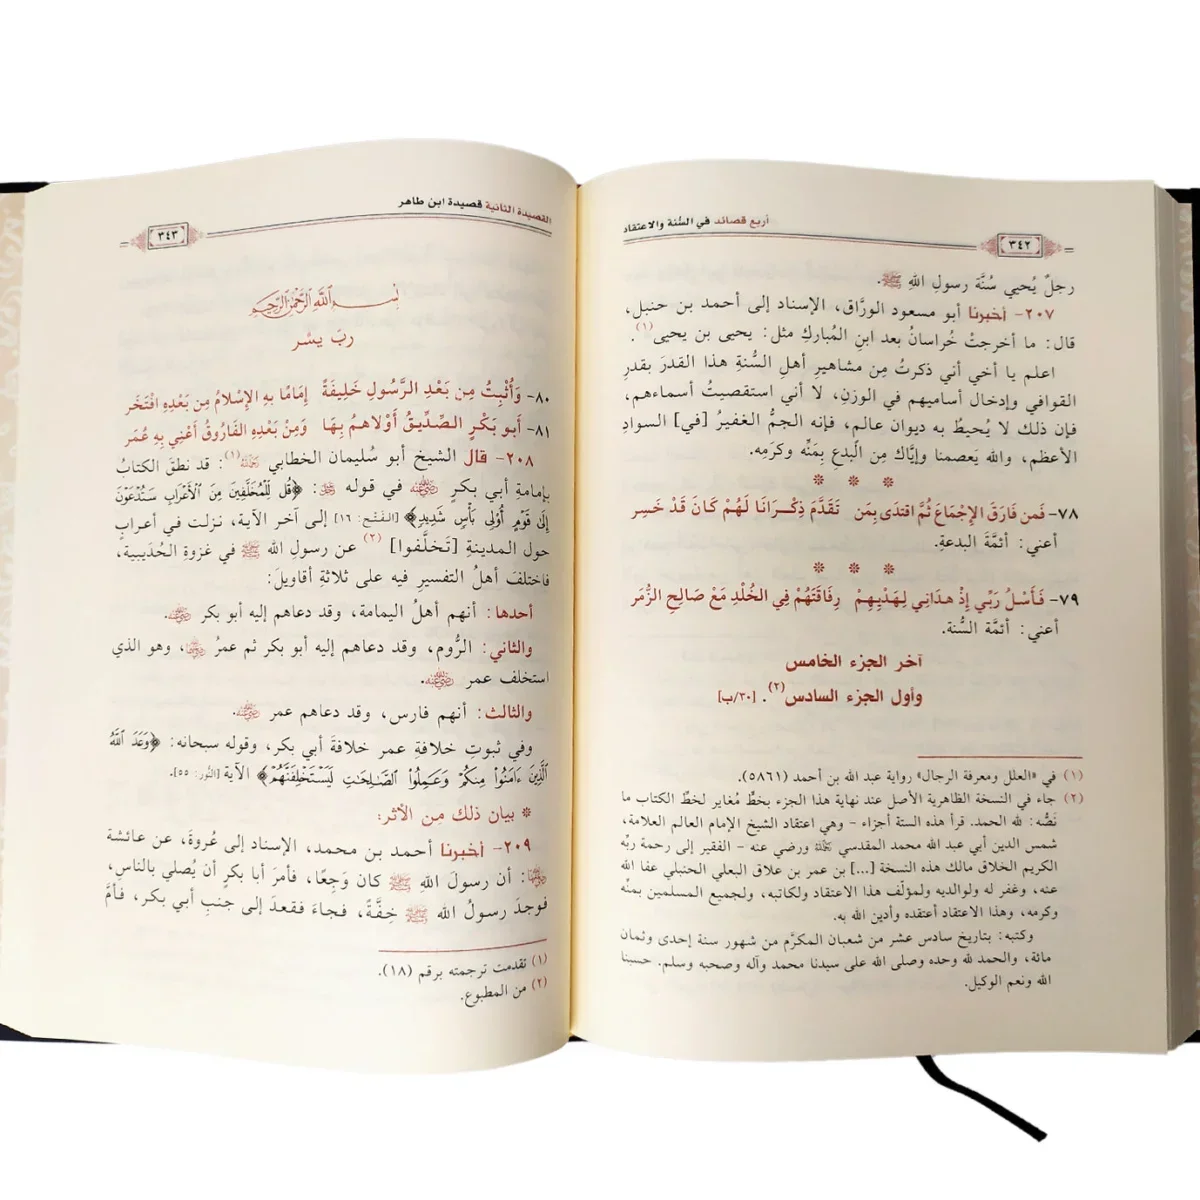 أربع قصائد في السُّنة والاعتقاد
٣٤٢
رجلٌ يُحيي سُنَّة رسولِ اللهِ ﷺ.
٢٠٧- أخبرنا أبو مسعود الورَّاق، الإسناد إلى أحمد بن حنبل،
قال: ما أخرجتْ خُراسانُ بعد ابنِ المُباركِ مثل: يحيى بن يحيى(١).
اعلم يا أخي أني ذكرتُ مِن مشاهيرِ أهلِ السُّنةِ هذا القدرَ بقدرِ
القوافي وإدخال أساميهم في الوزنِ، لا أني استقصيتُ أسماءهم،
فإن ذلك لا يُحيطُ به ديوان عالم، فإنه الجمُّ الغفيرُ [في] السوادِ
الأعظم، والله يَعصمنا وإيَّاك مِن الْبدعِ بِمَنِّه وكرمِه.
٧٨- فَمن فَارَقَ الإِجْمَاعَ ثُمَّ اقتدَى بِمَن تَقَدَّمَ ذِكْرَانَا لَهُمْ كَانَ قَدْ خَسِر
أعني: أئمَّةَ البدعةِ.
٧٩- فَأَسْلُ رَبِّي إِذْ هدَانِي لِهَدْيِهِمْ رِفَاقَتَهُمْ فِي الخُلْدِ مَعْ صَالِحِ الزُّمَر
أعني: أئمَّة السُّنة.
آخر الجزء الخامس
وأول الجزء السادس(٢). [٣٠/ب]
(١) في «العلل ومعرفة الرجال» رواية عبد الله بن أحمد (٥٨٦١).
(٢) جاء في النسخة الظاهرية الأصل عند نهاية هذا الجزء بخطٍّ مُغاير لخطِّ الكتاب ما
نَصُّه: لله الحمد. قرأ هذه الستة أجزاء - وهي اعتقاد الشيخ الإمام العالم العلامة،
شمس الدين أبي عبد الله محمد المقدسي رحمه الله ورضي عنه - الفقير إلى رحمة ربِّه
الكريم الخلاق مالك هذه النسخة [...] بن عمر بن علاق البعلي الحنبلي عفا الله
عنه، وغفر له ولوالديه ولمؤلِّف هذا الاعتقاد ولكاتبه، ولجميع المسلمين بمنِّه
وكرمه، وهذا الاعتقاد أعتقده وأدين الله به.
وكتبه: بتاريخ سادس عشر من شعبان المكرَّم من شهور سنة إحدى وثمان
مائة، والحمد لله وحده وصلى الله على سيدنا محمد وآله وصحبه وسلم. حسبنا
الله ونعم الوكيل.
القصيدة الثانية قصيدة ابن طاهر
٣٤٣
بسم الله الرحمن الرحيم
ربَ يسِّر
٨٠- وَأُثْبِتُ مِن بَعْدِ الرَّسُولِ خَلِيفَةً إِمَامًا بهِ الإِسْلامُ مِن بَعْدِهِ افْتَخَر
٨١- أَبو بَكْرٍ الصِّدِّيقُ أَوْلاهمُ بِهَا وَمِنْ بَعْدِهِ الفَارُوقُ أَعْنِي بِهِ عُمَر
٢٠٨- قال الشيخ أبو سُليمان الخطابي رحمه الله(١): قد نطقَ الكتابُ
بإمامةِ أبي بكرٍ رضي الله عنه في قوله عز وجل: ﴿قُل لِّلْمُخَلَّفِينَ مِنَ ٱلْأَعْرَابِ سَتُدْعَوْنَ
إِلَىٰ قَوْمٍ أُو۟لِى بَأْسٍ شَدِيدٍ﴾ [الفَتْح: ١٦] إلى آخر الآية، نزلت في أعرابِ
حول المدينةِ [تَخلَّفوا] (٢) عن رسولِ الله ﷺ في غزوةِ الحُدَيبية،
فاختلفَ أهلُ التفسيرِ فيه على ثلاثةِ أقاويلَ:
أحدها: أنهم أهلُ اليمامة، وقد دعاهم إليه أبو بكر رضي الله عنه.
والثاني: الرُّوم، وقد دعاهم إليه أبو بكر ثم عمرُ رضي الله عنهما، وهو الذي
استخلف عمر رضي الله عنه.
والثالث: أنهم فارس، وقد دعاهم عمر رضي الله عنه.
وفي ثبوتِ خلافةِ عمر خلافةَ أبي بكر، وقوله سبحانه: ﴿وَعَدَ ٱللَّهُ
ٱلَّذِينَ ءَامَنُوا۟ مِنكُمْ وَعَمِلُوا۟ ٱلصَّـٰلِحَـٰتِ لَيَسْتَخْلِفَنَّهُمْ﴾ الآية [النُّور: ٥٥].
* بيان ذلك مِن الأثر:
٢٠٩- أخبرنا أحمد بن محمد، الإسناد إلى عُروةَ، عن عائشة
رضي الله عنها: أن رسولَ اللهِ ﷺ كان وَجِعًا، فأمرَ أبا بكرٍ أن يُصلي بالناسِ،
فوجدَ رسولُ الله ﷺ خِفَّةً، فجاءَ فقعدَ إلى جنبِ أبي بكر، فأمَّ
(١) تقدمت ترجمته برقم (١٨).
(٢) من المطبوع.